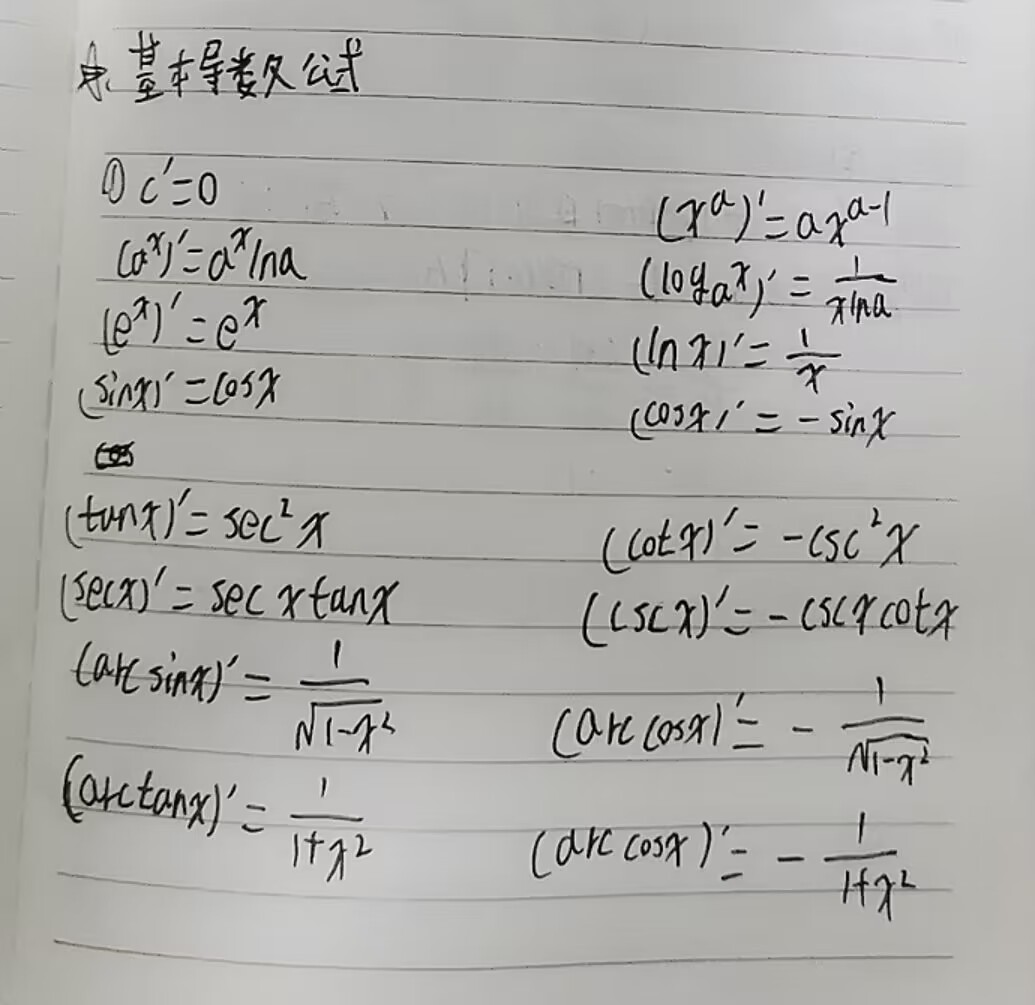 ☆ 基本导数公式
① c'=0 (x^a)'=ax^{a-1}
(a^x)'=a^x lna (log_a x)'=1/(xlna)
(e^x)'=e^x (lnx)'=1/x
(sinx)'=cosx (cosx)'=-sinx
(tanx)'=sec²x (cotx)'=-csc²x
(secx)'=secxtanx (cscx)'=-cscxcotx
(arcsinx)'=1/√(1-x²) (arccosx)'=-1/√(1-x²)
(arctanx)'=1/(1+x²) (arccosx)'=-1/(1+x²)